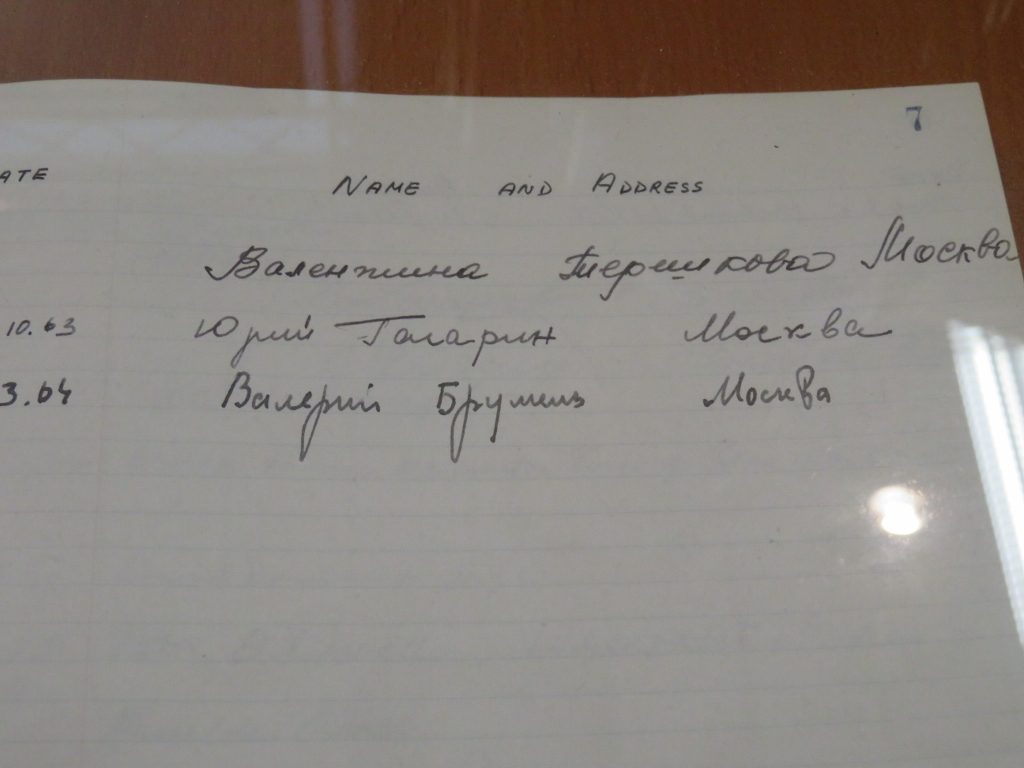 7
ATE NAME AND ADDRESS
Валентина Терешкова Москва
10.63 Юрий Гагарин Москва
3.64 Валерий Брумель Москва